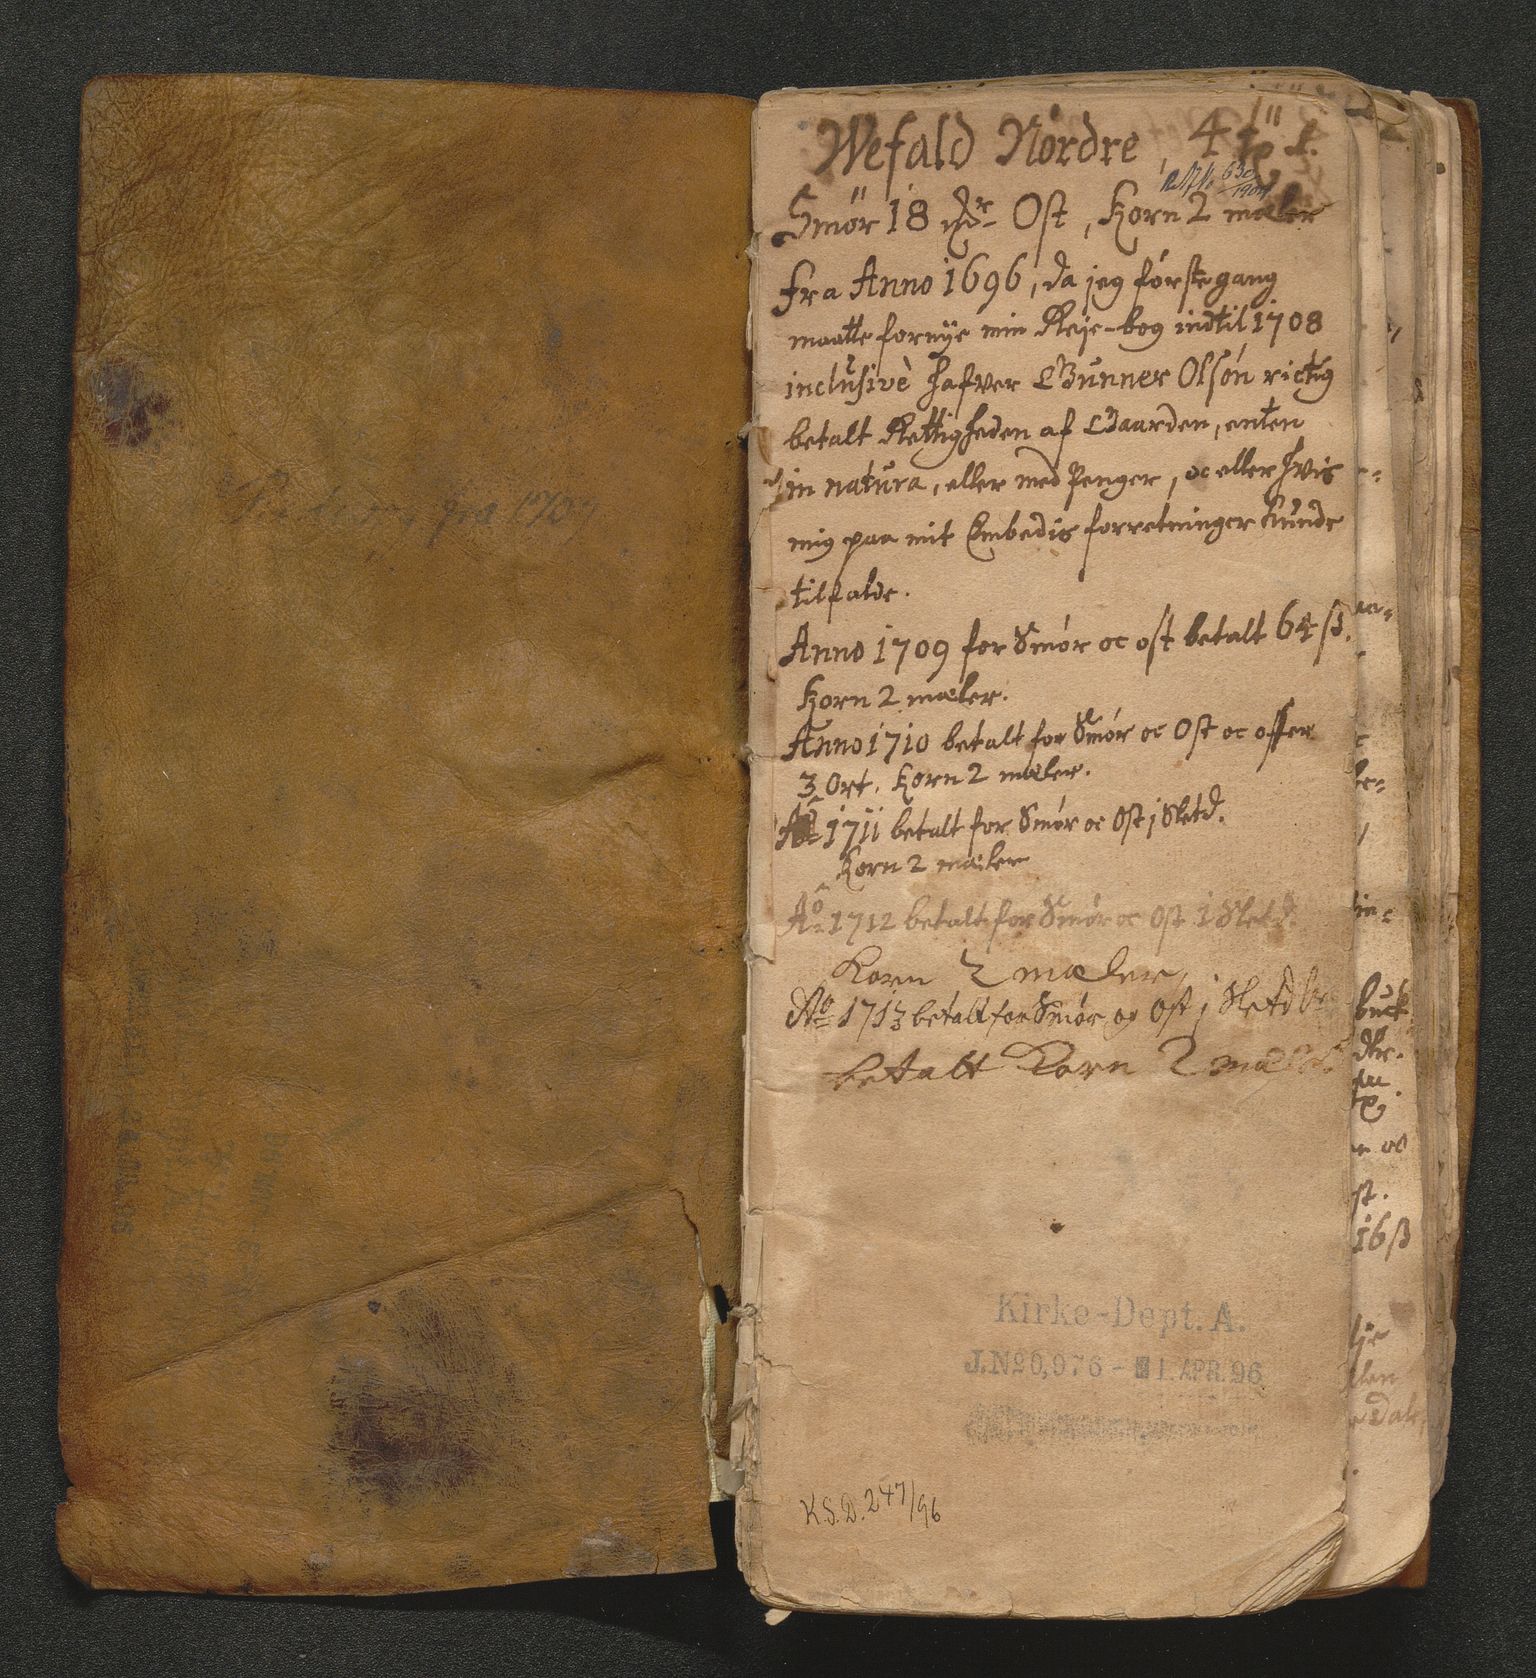 fra 170
Wefald Nordre, 4
Smør 18 Ost, Korn 2 mæler
fra Anno 1696, da jeg første gang
maatte fornÿe min Reje-bog indtil 1708
inclusivè hafver Gunner Olsøn rictig
betalt Rettigheden af Gaarden, enten
in natura, eller med Penger, oc eller hvis
mig paa mit Embedis forretninger kunde
tilfalde.
Anno 1709 for Smør oc ost betalt 64 ß.
Korn 2 mæler.
Anno 1710 betalt for Smør oc Ost oc offer
3 Ort. Korn 2 mæler.
Aō 1711 betalt for Smør oc Ost j Sletd.
Korn 2 mæler
Aō 1712 betalt for Smør oc Ost 1 Sletd.
Korn 2 mæler
Ao 1713 betalt for Smør og Ost j Sletd
betalt Korn 2
Kirke-Dept. A.
J.No 0,976 - 1. APR. 96
K.S.D. 247/96
buck
dlr.
oc
st.
16 ß
lie